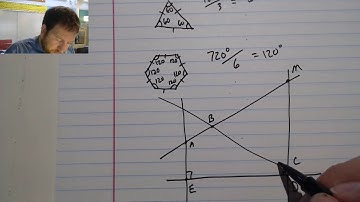 60
60 60
3
120 120
120 120
120 120
720°/6 = 120°
M
B
A
C
E